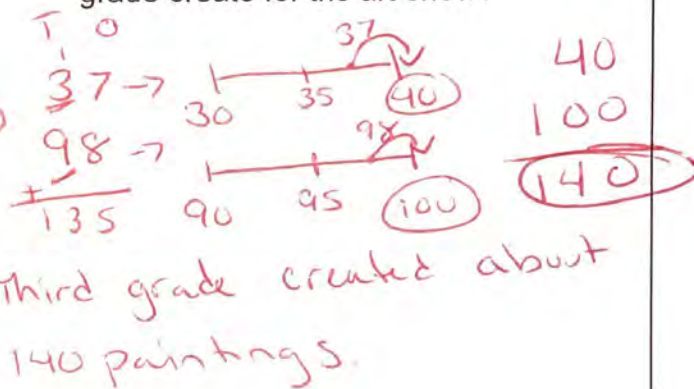 grade create for the art show?
T O
1
37 → 30 35 37 40 40
98 → 90 95 98 100 100
+
135 140
Third grade created about
140 paintings.